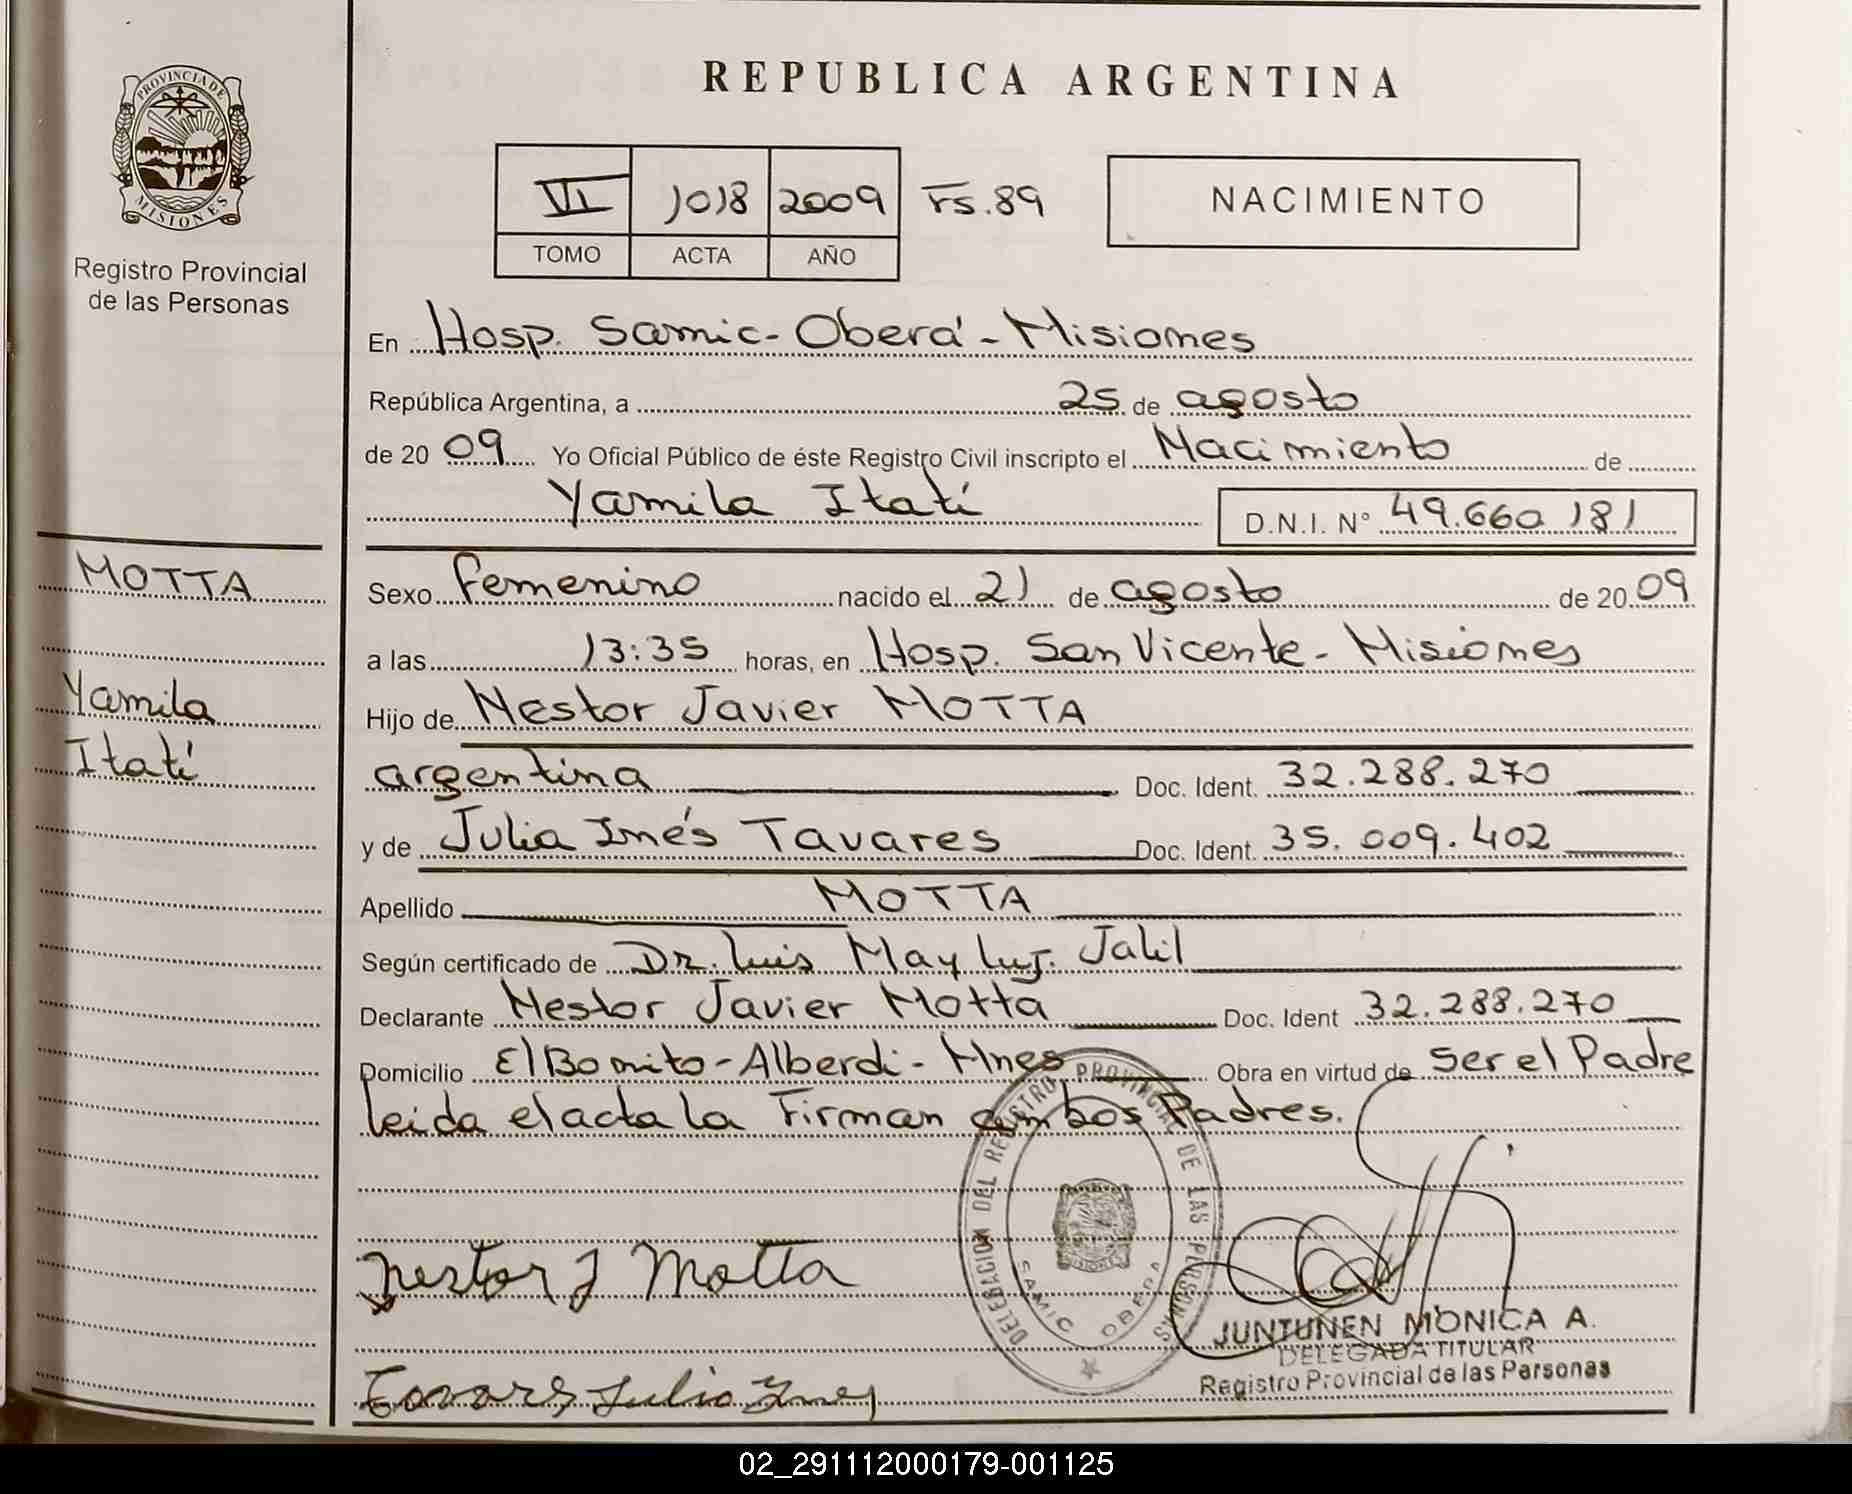 PROVINCIA DE
MISIONES
Registro Provincial
de las Personas
REPUBLICA ARGENTINA
VI 1018 2009 Fs.89
TOMO ACTA AÑO
NACIMIENTO
En Hosp. Samic - Oberá - Misiones
República Argentina, a 25 de agosto
de 20 09 Yo Oficial Público de éste Registro Civil inscripto el Nacimiento de
Yamila Itatí D.N.I. N° 49.660 181
MOTTA
Yamila
Itatí
Sexo Femenino nacido el 21 de agosto de 20 09
a las 13:35 horas, en Hosp. San Vicente - Misiones
Hijo de Nestor Javier MOTTA
argentina Doc. Ident. 32.288.270
y de Julia Inés Tavares Doc. Ident. 35.009.402
Apellido MOTTA
Según certificado de Dr. Luis May Luj. Jalil
Declarante Nestor Javier Motta Doc. Ident 32.288.270
Domicilio El Bonito - Alberdi - Mnes Obra en virtud de Ser el Padre
leida el acta la Firman ambos Padres.
DELEGACION DEL REGISTRO PROVINCIAL DE LAS PERSONAS
SAMIC OBERA
MISIONES
Nestor J Motta
Tavares Julia Ines
JUNTUNEN MONICA A.
DELEGADA TITULAR
Registro Provincial de las Personas
02_291112000179-001125